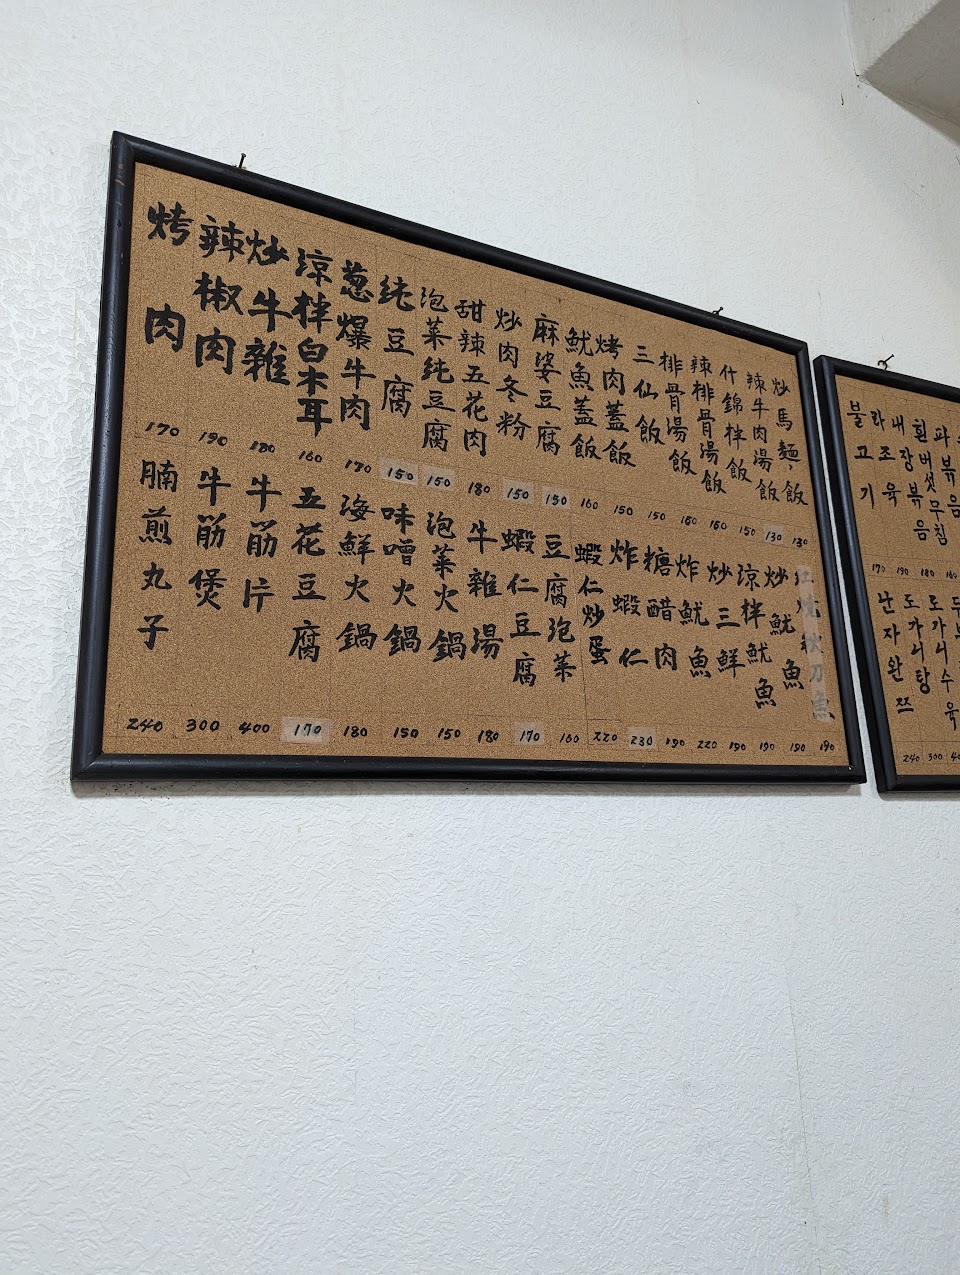 炒馬麵、飯
130
辣牛肉湯飯
130
什錦拌飯
150
辣排骨湯飯
160
排骨湯飯
160
三仙飯
150
烤肉蓋飯
150
魷魚蓋飯
160
麻婆豆腐
150
炒肉冬粉
150
甜辣五花肉
180
泡菜純豆腐
150
純豆腐
150
葱爆牛肉
170
涼拌白木耳
160
炒牛雜
180
辣椒肉
190
烤肉
170
紅燒秋刀魚
190
炒魷魚
190
涼拌魷魚
190
炒三鮮
190
炸魷魚
220
糖醋肉
190
炸蝦仁
230
蝦仁炒蛋
220
豆腐泡菜
160
蝦仁豆腐
170
牛雜湯
180
泡菜火鍋
150
味噌火鍋
150
海鮮火鍋
180
五花豆腐
170
牛筋片
400
牛筋煲
300
腩煎丸子
240
불고기
170
라조육
190
내장볶음
180
흰버섯무침
160
난자완쯔
240
도가니탕
300
도가니수육